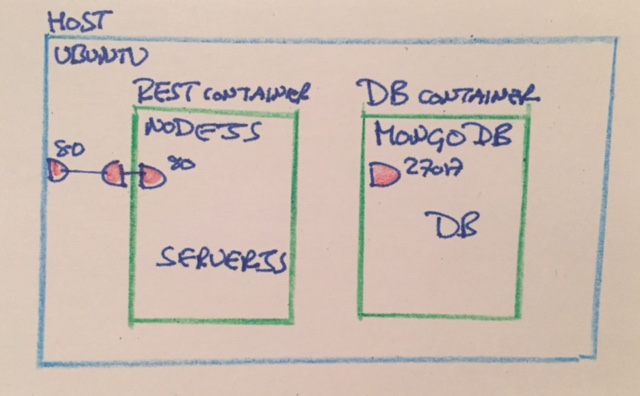 HOST
UBUNTU
REST CONTAINER
NODEJS
80
80
SERVERJS
DB CONTAINER
MONGODB
27017
DB